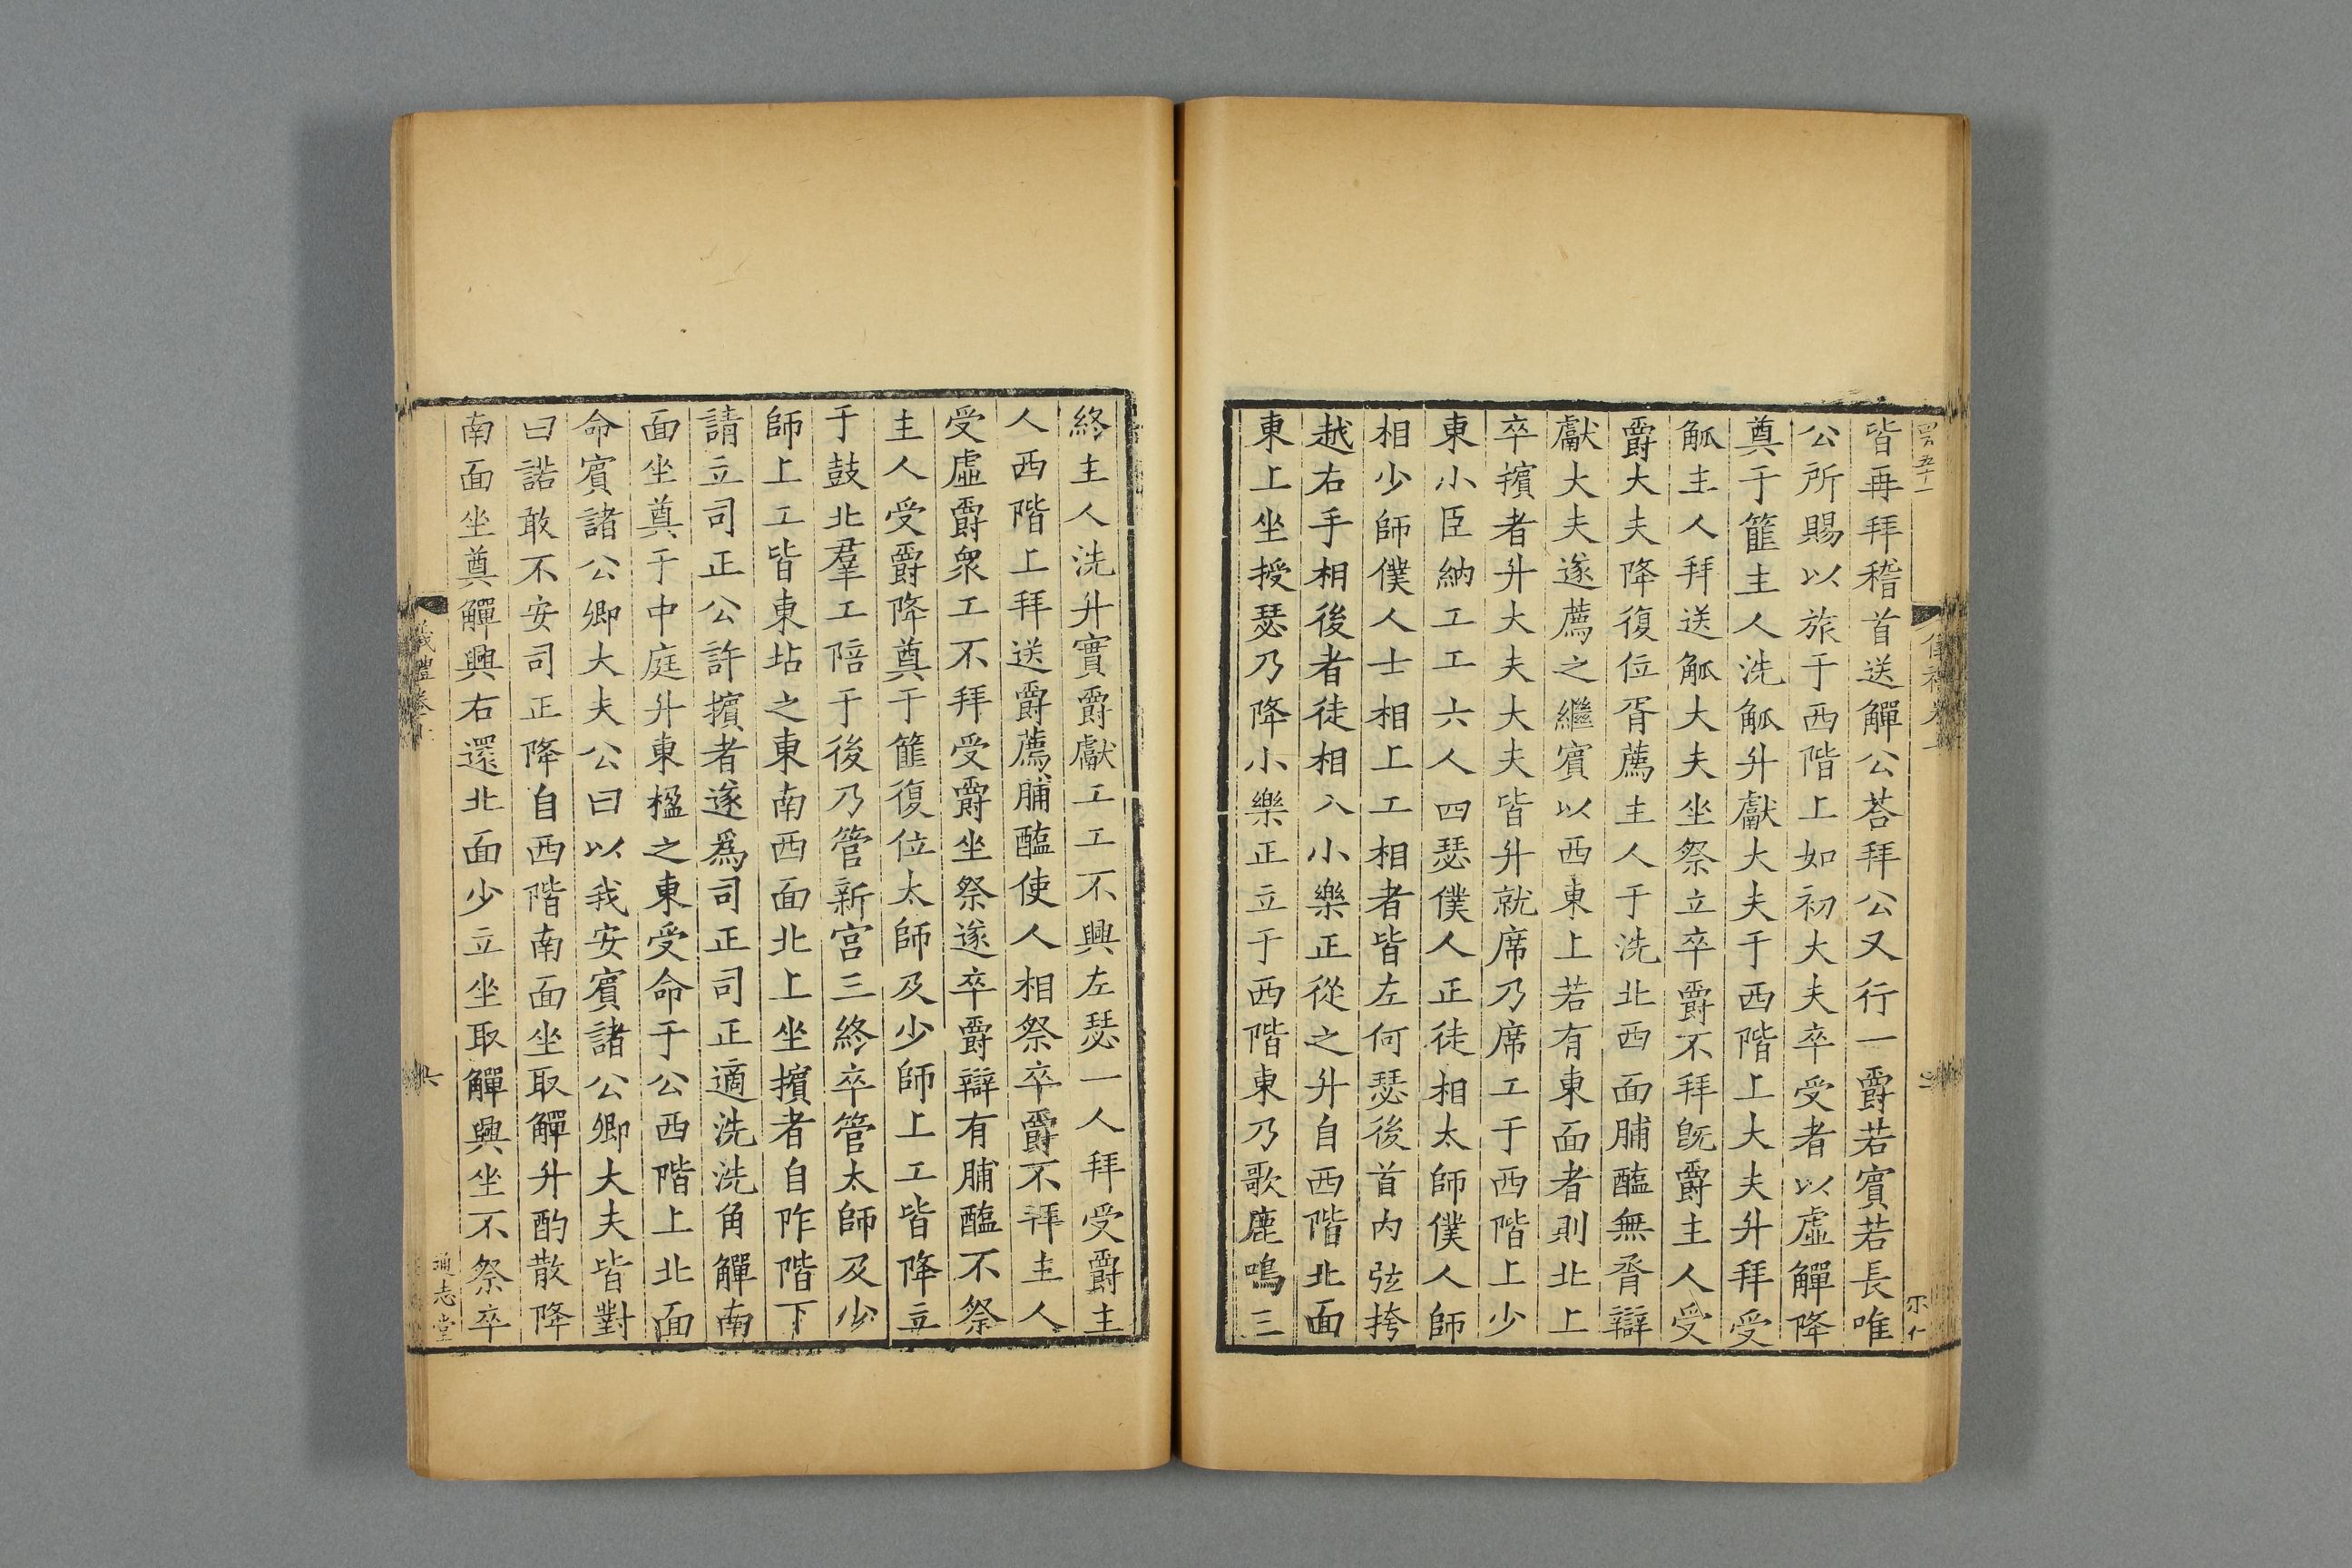 皆再拜稽首送觶公荅拜公又行一爵若賓若長唯
公所賜以旅于西階上如初大夫卒受者以虛觶降
奠于篚主人洗觚升獻大夫于西階上大夫升拜受
觚主人拜送觚大夫坐祭立卒爵不拜旣爵主人受
爵大夫降復位胥薦主人于洗北西面脯醢無脀辯
獻大夫遂薦之繼賓以西東上若有東面者則北上
卒擯者升大夫大夫皆升就席乃席工于西階上少
東小臣納工工六人四瑟僕人正徒相太師僕人師
相少師僕人士相上工相者皆左何瑟後首內弦挎
越右手相後者徒相入小樂正從之升自西階北面
東上坐授瑟乃降小樂正立于西階東乃歌鹿鳴三
終主人洗升實爵獻工工不興左瑟一人拜受爵主
人西階上拜送爵薦脯醢使人相祭卒爵不拜主人
受虛爵衆工不拜受爵坐祭遂卒爵辯有脯醢不祭
主人受爵降奠于篚復位太師及少師上工皆降立
于鼓北羣工陪于後乃管新宮三終卒管太師及少
師上工皆東坫之東南西面北上坐擯者自阼階下
請立司正公許擯者遂爲司正司正適洗洗角觶南
面坐奠于中庭升東楹之東受命于公西階上北面
命賓諸公卿大夫公曰以我安賓諸公卿大夫皆對
曰諾敢不安司正降自西階南面坐取觶升酌散降
南面坐奠觶興右還北面少立坐取觶興坐不祭卒
儀禮卷
通志堂